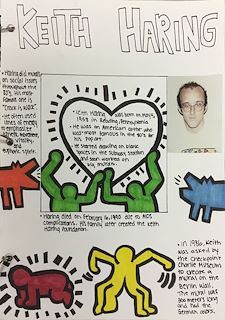 KEITH HARING
• Haring did murals
on social issues
throughout the
80's, his most
famous one is
"Crack is Wack".
• He often used
lines of energy
to emphasize
movement,
vitality, and
• Keith Haring was born in May 4,
1958 in Reading, Pennsylvania.
• He was an American artist who
was most famous in the 80's for
his pop art.
• He started drawing on blank
spaces in the subway station
and soon worked on
big murals.
• Haring died on February 16, 1990 due to AIDS
complications. His family later created the Keith
Haring Foundation.
• In 1986, Keith
was asked by
the Checkpoint
Charlie Museum
to create a
mural on the
Berlin Wall.
The mural was
300 meters long
and had the
German colors.